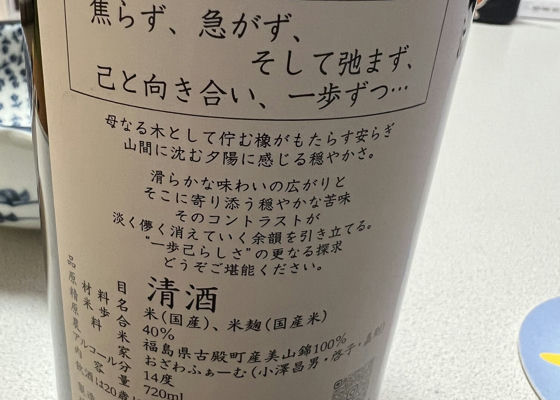 焦らず、急がず、
そして弛まず、
己と向き合い、一歩ずつ…
母なる木として佇む橡がもたらす安らぎ
山間に沈む夕陽に感じる穏やかさ。
滑らかな味わいの広がりと
そこに寄り添う穏やかな苦味
そのコントラストが
淡く儚く消えていく余韻を引き立てる。
“一歩己らしさ”の更なる探求
どうぞご堪能ください。
品目 清酒
原材料名 米(国産)、米麹(国産米)
精米歩合 40%
原料米 福島県古殿町産美山錦100%
農家 おざわふぁーむ(小澤昌男・啓子・
アルコール分 14度
内容量 720ml
飲酒は20歳